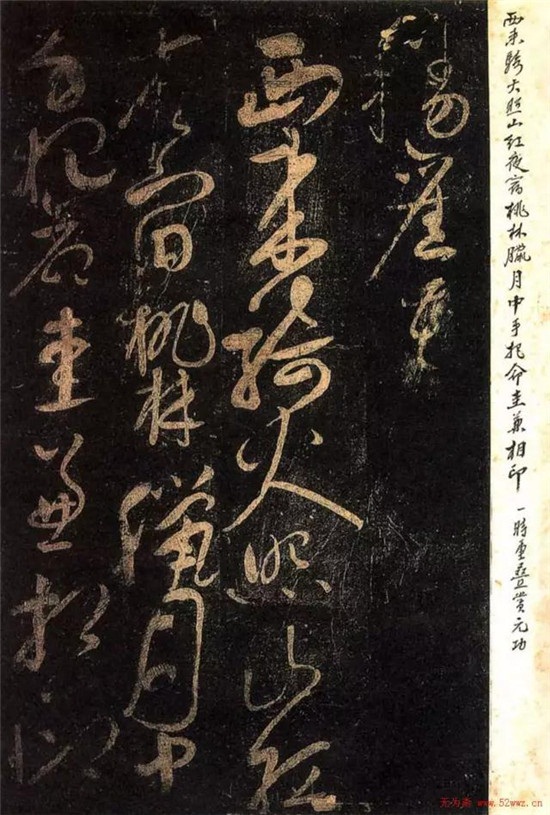 西来騎火照山红夜宿桃林臘月中手把命圭兼相印 一時重叠赏元功
西来騎火照山红
夜宿桃林臘月中
手把命圭兼相印
www.52wwz.cn